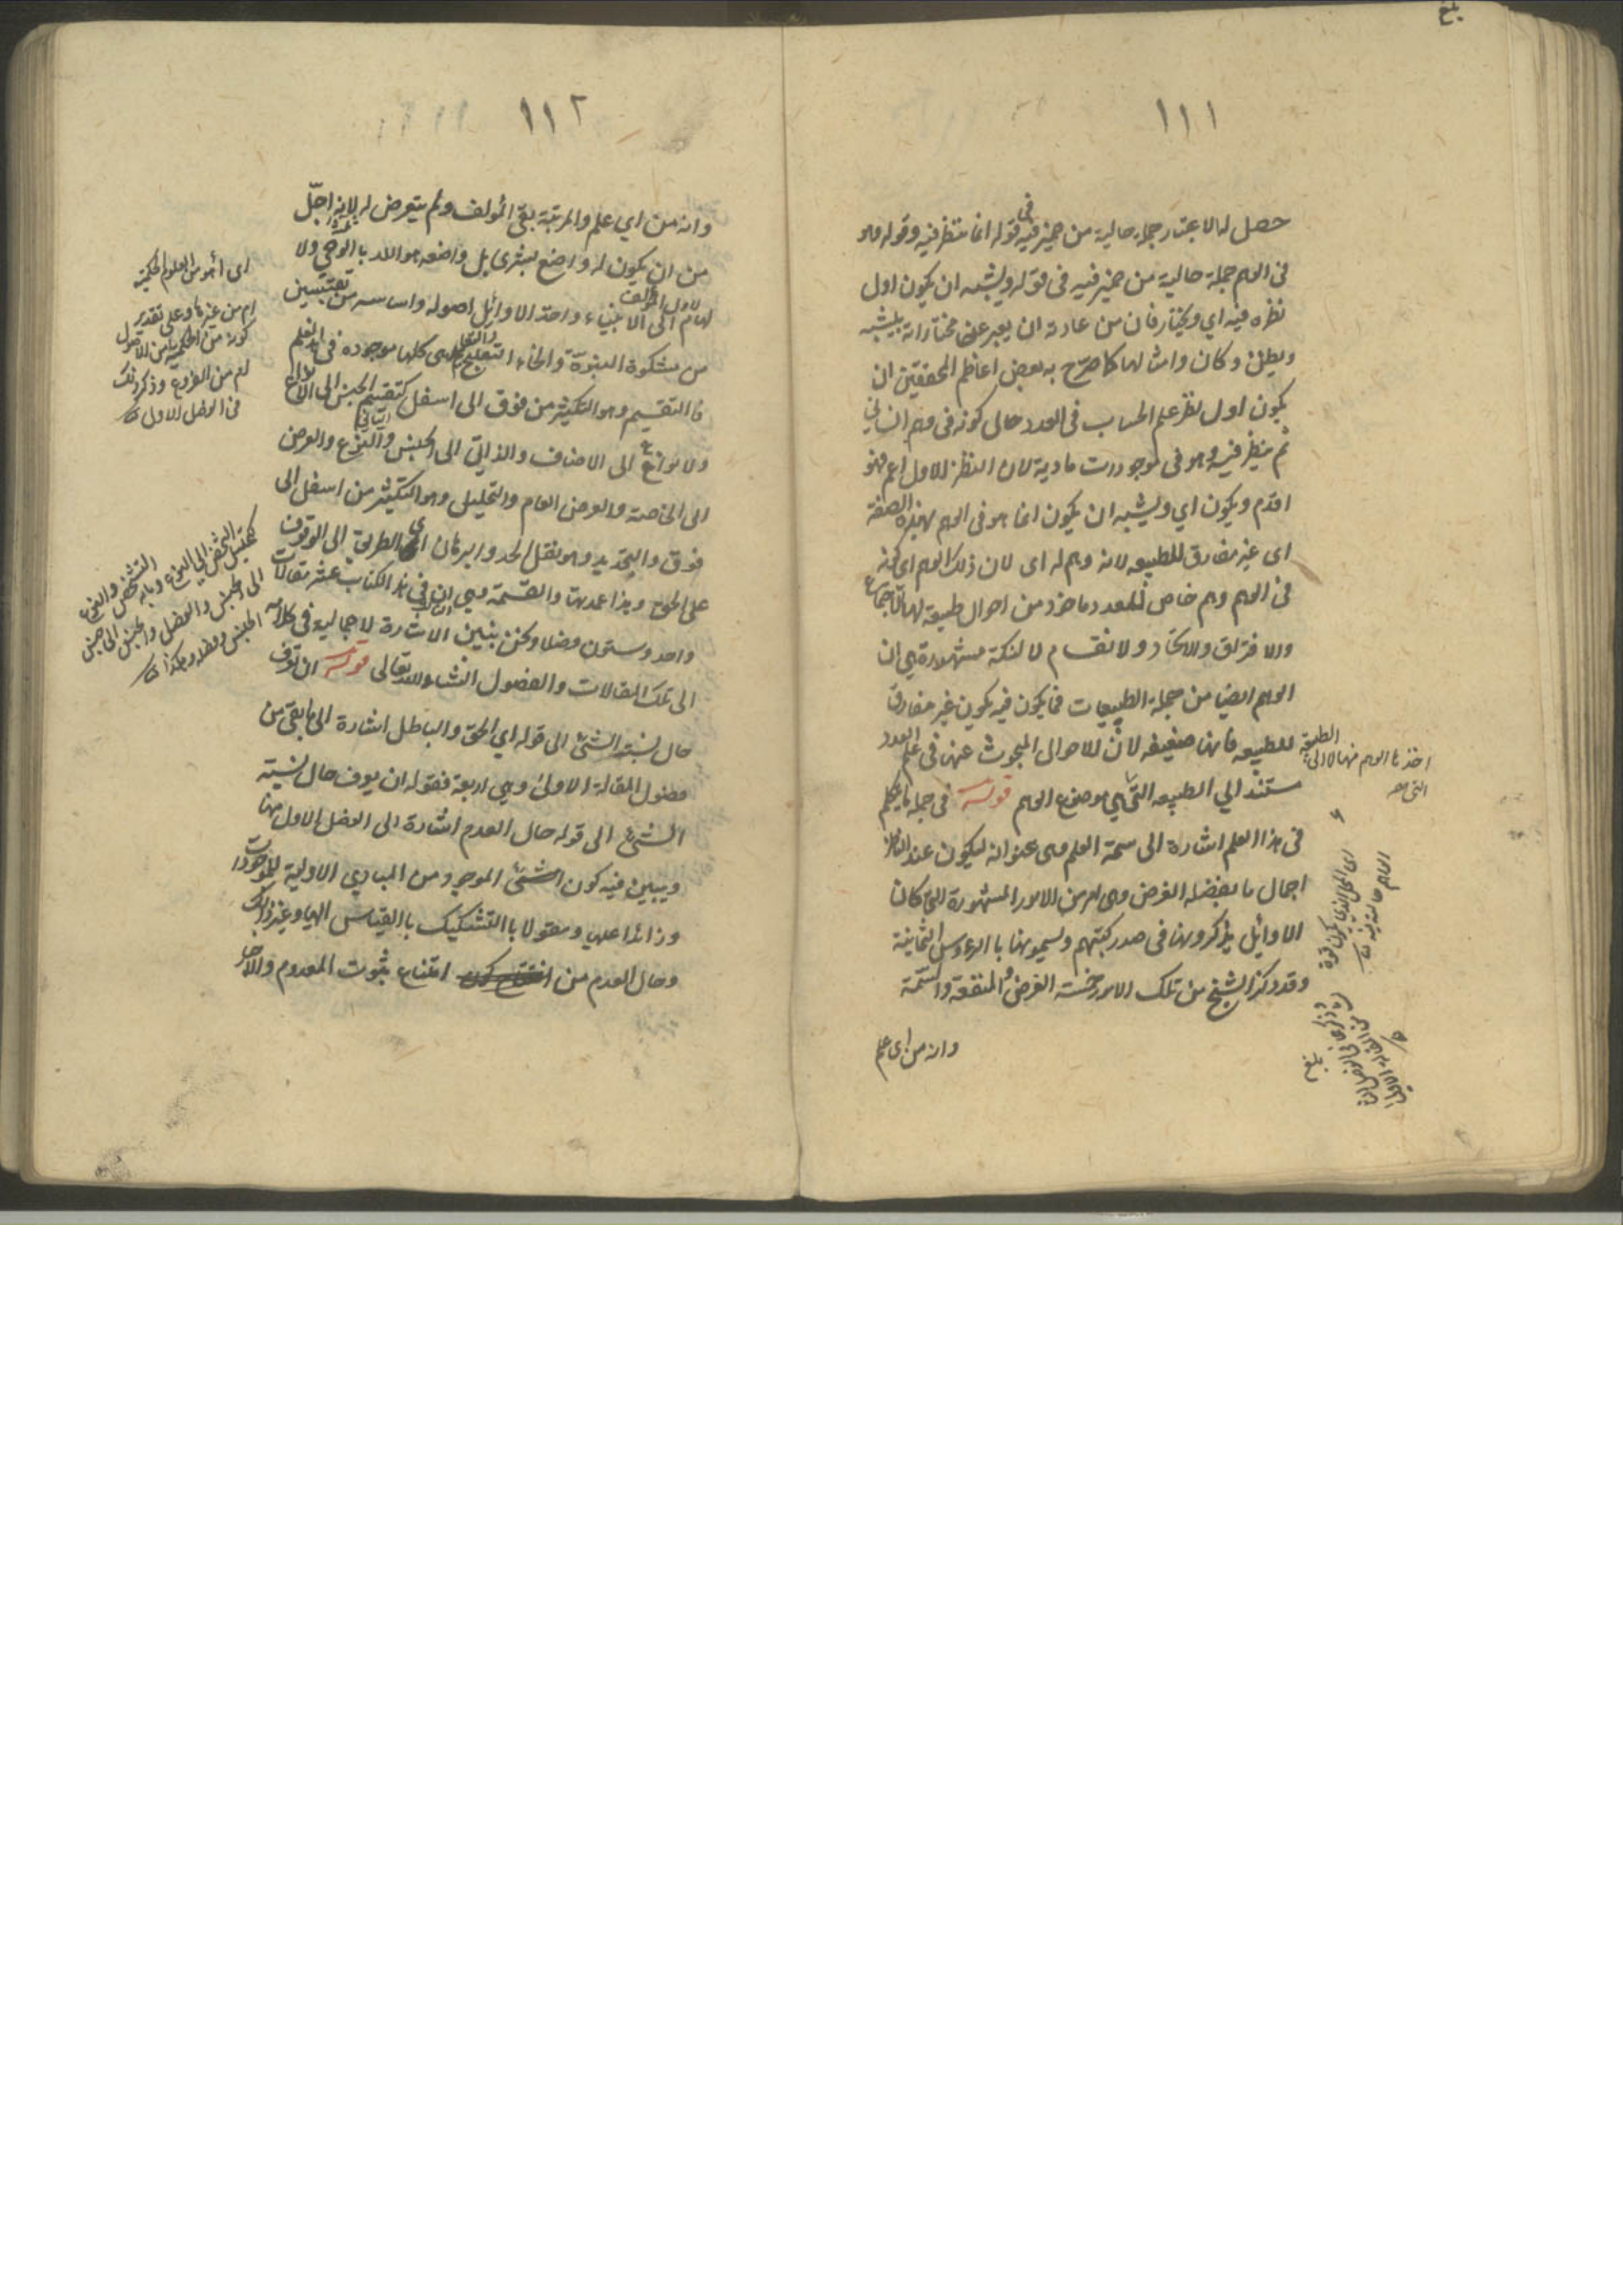 ١١١
حصل له الاعتبار جملة حالية من ضمير فيه في قوله انما ينظر فيه وقوله وهو
في الوهم جملة حالية من ضمير فيه في قوله ويشبه ان يكون اول
نظره فيه اي ويختار فان من عادته ان يعبر عن مختاراته بيشبه
ويظن وكان وامثالها كما صرح به بعض اعاظم المحققين ان
يكون اول نظر علم الحساب في العدد حال كونه في وهم انساني
ثم ينظر فيه وهو في موجودات مادية لان النظر الاول اعم فهو
اقدم ويكون اي ويشبه ان يكون انما هو في الوهم بهذه الصفة
اى غير مفارق للطبيعه لانه وهم له اى لان ذلك الوهم اى كونه
في الوهم وهم خاص للعدد ماخوذ من احوال طبيعة لها الاجتماع
والافتراق والاتحاد والانقسام لا لنكتة مشهورة هي ان
الوهم ايضا من جملة الطبيعيات فما يكون فيه يكون غير مفارق
للطبيعه فانها ضعيفه لان الاحوال المبحوث عنها في علم العدد
ستند الي الطبيعه التي هي موضوع الوهم قوله في جملة ما يتكلم
في هذا العلم اشارة الى سمة العلم وهى عنوانه ليكون عند الناظر
اجمال ما يفصله الغرض وهى من الامور المشهورة التي كان
الاوائل يذكرونها في صدر كتبهم ويسمونها باالرءوس الثمانية
وقد ذكر الشيخ من تلك الامور خمسة الغرض والمنفعة والسمة
وانه من اى علم
الطبيعة
اخذها الوهم منها لا الى
التي
اى المحل الذي يكون قوة
الوهم حالة فيه
١١٢
وانه من اي علم والمرتبة بقي المؤلف ولم يتعرض له لانه اجلّ
من ان يكون له واضع بشرى بل واضعه هو الله باالوحي والا
لهام الى الانبياء واخذ الاوائل اصوله واساسه مقتبسين
من مشكوة النبوة وانحاء التعليم وهى كلها موجوده في هذا العلم
فاالتقسيم وهو التكثير من فوق الى اسفل كتقسيم الجنس الى الانواع
والانواع الى الاصناف والذاتي الى الجنس والنوع والعرض
الى الخاصة والعرض العام والتحليل وهو التكثير من اسفل الى
فوق والتحديد وهو نقل الحد والبرهان اى الطريق الى الوقوف
على الحق وهذا عمدتها والقسمة وهي ان في هذا الكتاب عشر مقالات
واحد وستون فصلا ونحن نبين الاشارة الاجمالية في كلامه
الى تلك المقالات والفصول انشاء الله تعالى قوله ان نعرف
حال نسبة الشئ الى قوله اي الحق والباطل اشارة الى ما بقي من
فصول المقالة الاولى وهي اربعة فقوله ان يعرف حال نسبة
الشئ الى قوله حال العدم اشارة الى الفصل الاول منها
ويبين فيه كون الشئ الموجود من المبادي الاولية للموجودات
وزائدا عليه ومقولا باالتشكيك باالقياس اليها وغير ذلك
وحال العدم من امتناع ثبوت المعدوم والاخبار
اى أهو من العلوم الحكمية
ام من غيرها وعلى تقدير
كونه من الحكمية أمن الاصول
ام من الفروع وذكر ذلك
في الفصل الاول